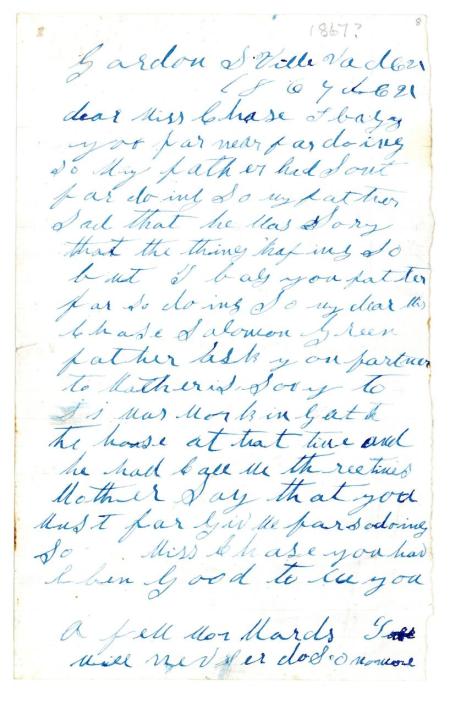 1867?
8
Gardon S Ville Va dec 21
1867 dec 21
dear Miss Chase I bagg
you par near par doing
so My father had Sout
par do ing So my father
Sad that he Was Sory
that the thing haping So
but I bag you patter
par so do ing So my dear Mis
Chase Salomon Green
father Ask you partner
to Mather is Sory to
is Was Work in Gat t
the house at that time and
he had Call Me th ree times
Mother Say that you
Must far Giv Me par so doing
So Miss Chase you had
been Good to Me you
A few Mor Wards I
will nev er do S o no more